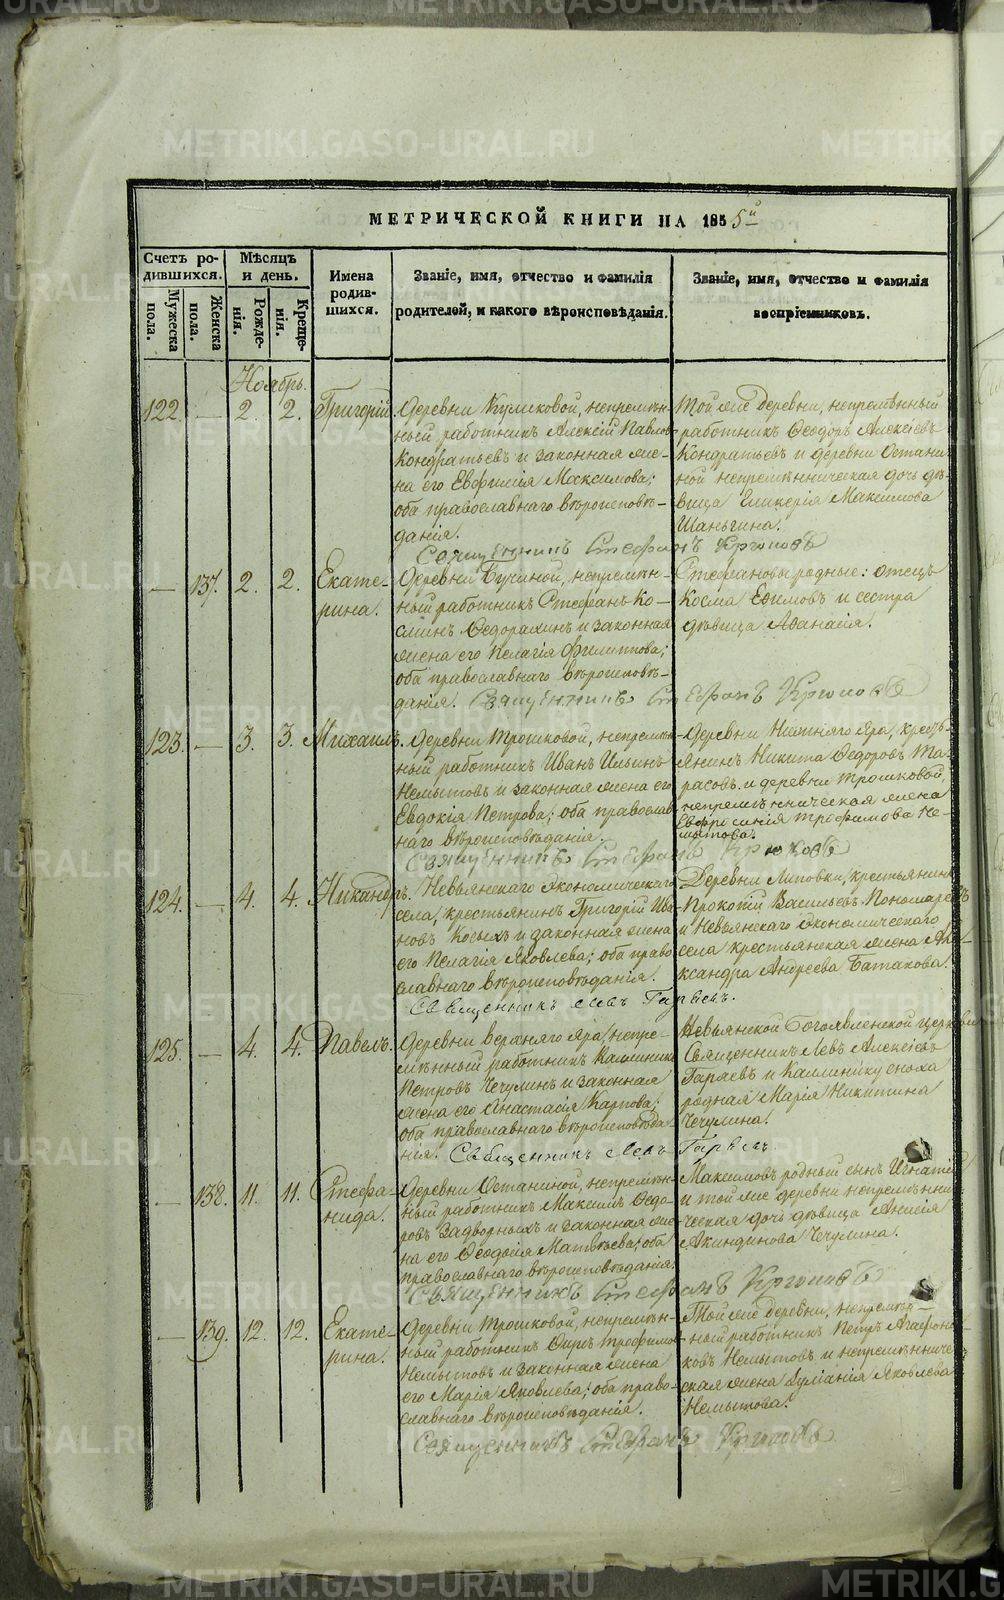 METRIKI.GASO-URAL.RU
МЕТРИЧЕСКОЙ КНИГИ НА 1855й
Счетъ ро-
дившихся.
Мужеска
пола.
Женска
пола.
Мѣсяцъ
и день.
Рожде-
нія.
Креще-
нія.
Имена
родив-
шихся.
Званіе, имя, отчество и фамилія
родителей, и какого вѣроисповѣданія.
Званіе, имя, отчество и фамилія
воспріемниковъ.
Ноябрь.
122. — 2. 2. Григорій.
Деревни Куликовой, непремѣн-
ный работникъ Алексій Павловъ
Кондратьевъ и законная же-
на его Евфимія Максимова;
оба православнаго вѣроисповѣ-
данія.
Той же деревни, непремѣнный
работникъ Ѳеодоръ Алексіевъ
Кондратьевъ и деревни Остани-
ной непремѣнническая дочь дѣ-
вица Гликерія Максимова
Шаньгина.
Священникъ Стефанъ Крюковъ
— 137. 2. 2. Екате-
рина.
Деревни Бучиной, непремѣн-
ный работникъ Стефанъ Ко-
зминъ Ѳедорахинъ и законная
жена его Пелагія Филиппова;
оба православнаго вѣроисповѣ-
данія.
Стефановы родные: отецъ
Косма Евимовъ и сестра
дѣвица Аѳанасія.
Священникъ Стефанъ Крюковъ
123. — 3. 3. Михаилъ.
Деревни Трошковой, непремѣн-
ный работникъ Иванъ Ильинъ
Немытовъ и законная жена его
Евдокія Петрова; оба православ-
наго вѣроисповѣданія.
Деревни Нижняго Яра, кресть-
янинъ Никита Ѳедоровъ Та-
расовъ и деревни Трошковой,
непремѣнническая жена
Евфросинія Трофимова Не-
мытова.
Священникъ Стефанъ Крюковъ
124. — 4. 4. Никандръ.
Невьянскаго Экономическаго
села, крестьянинъ Григорій Ива-
новъ Косыхъ и законная жена
его Пелагія Яковлева; оба право-
славнаго вѣроисповѣданія.
Деревни Липовки, крестьянинъ
Прокопій Васильевъ Пономаревъ
и Невьянскаго Экономическаго
села крестьянская жена Але-
ксандра Андреева Батакова.
Священникъ Левъ Гаряевъ.
125. — 4. 4. Павелъ.
Деревни Верхняго Яра, непре-
мѣнный работникъ Каллиникъ
Петровъ Чечулинъ и законная
жена его Анастасія Карпова;
оба православнаго вѣроисповѣда-
нія.
Невьянской Богоявленской церкви
Священникъ Левъ Алексіевъ
Гаряевъ и Каллинику сноха
родная Марія Никитина
Чечулина.
Священникъ Левъ Гаряевъ
— 138. 11. 11. Стефа-
нида.
Деревни Останиной, непремѣн-
ный работникъ Максимъ Ѳедо-
ровъ Задворныхъ и законная же-
на его Ѳеодосія Матвѣева; оба
православнаго вѣроисповѣданія.
Максимовъ родный сынъ Игнатій
и той же деревни непремѣнни-
ческая дочь дѣвица Анисія
Акиндинова Чечулина.
Священникъ Стефанъ Крюковъ
— 139. 12. 12. Екате-
рина.
Деревни Трошковой, непремѣн-
ный работникъ Киръ Трофимовъ
Немытовъ и законная жена
его Марія Яковлева; оба право-
славнаго вѣроисповѣданія.
Той же деревни, непремѣн-
ный работникъ Петръ Агафони-
ковъ Немытовъ и непремѣнниче-
ская жена Іуліанія Яковлева
Немытова.
Священникъ Стефанъ Крюковъ